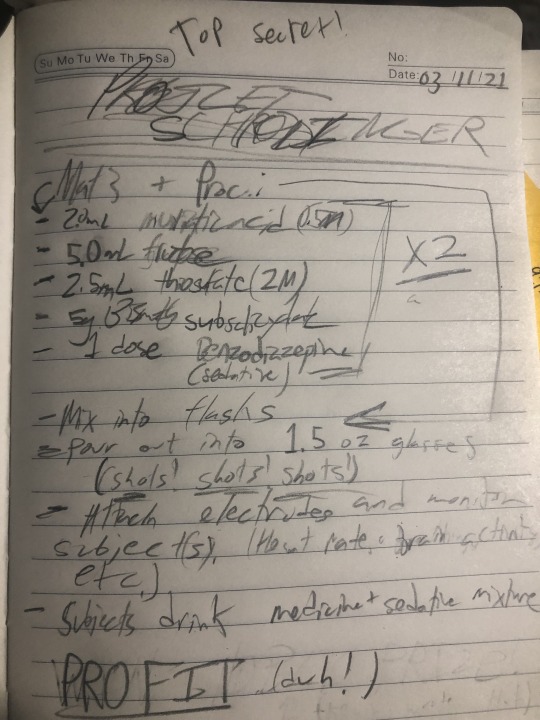 Top secret!
Su Mo Tu We Th Fr Sa
No:
Date: 03/11/21
PROJECT
SCHRODINGER
Mat3 + Proc.:
- 2.0mL muriatic acid (0.5m)
- 5.0mL
- 2.5mL (2M)
- 5g
- 1 dose Benzodizzepine
(sedative)
X2
- Mix into flashs
- Pour out into 1.5 oz glasses
(shots! shots! shots!)
- Attach electrodes and monitor
subject(s). (Heart rate, brain
etc.)
- Subjects drink medicine + sedative mixture
PROFIT (duh!)